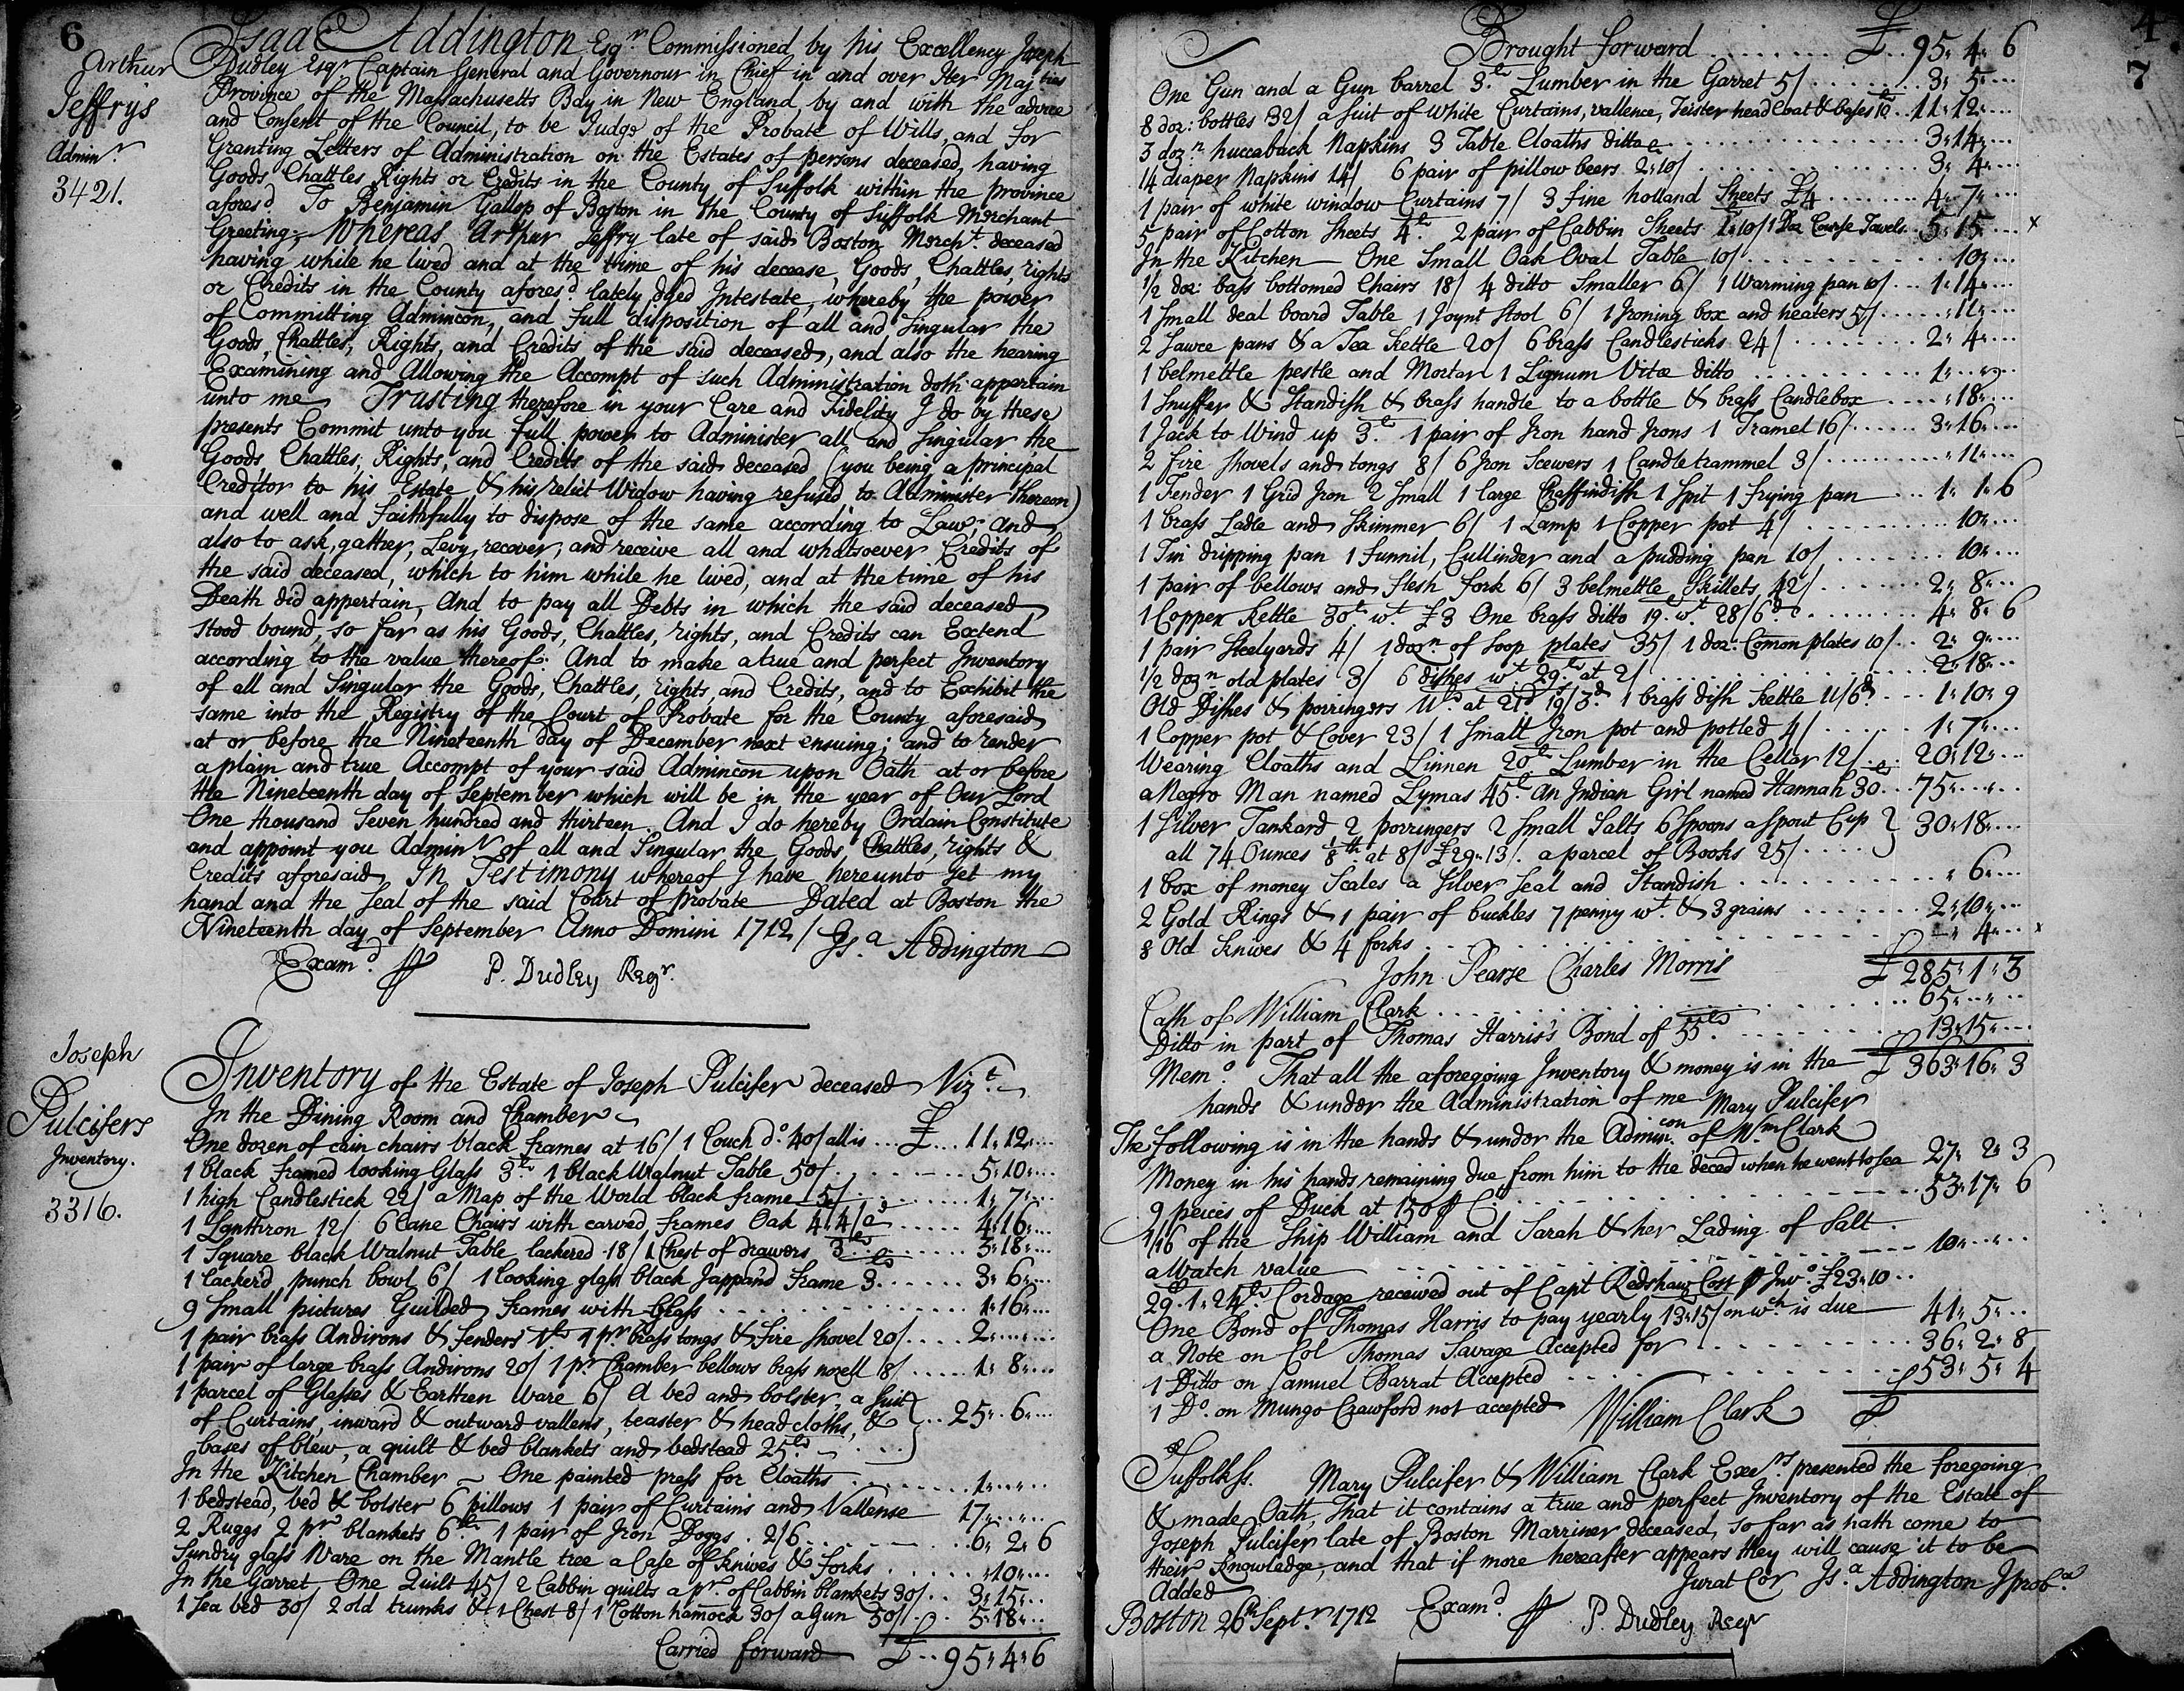 6
Arthur
Jeffrys
Adminr.
3421.
Isaac Addington Esqr. Commissioned by his Excellency Joseph
Dudley Esqr Captain General and Governour in Chief in and over Her Majties
Province of the Massachusetts Bay in New England, by and with the advice
and Consent of the Council, to be Judge of the Probate of Wills, and for
Granting Letters of Administration on the Estates of persons deceased, having
Goods Chattles Rights or Credits in the County of Suffolk within the province
aforesd To Benjamin Gallop of Boston in the County of Suffolk Merchant
Greeting; Whereas Arthur Jeffry late of said Boston Mercht. deceased
having while he lived and at the time of his decease, Goods, Chattles, rights
or Credits in the County aforesd. lately dyed Intestate, whereby the power
of Committing Admincon, and full disposition of all and Singular the
Goods, Chattles, Rights, and Credits of the said deceased, and also the hearing
Examining and Allowing the Accompt of such Administration doth appertain
unto me, Trusting therefore in your Care and Fidelity I do by these
presents Commit unto you full power to Administer all and Singular the
Goods, Chattles, Rights, and Credits of the said deceased (you being a principal
Creditor to his Estate & his relict Widow having refused to Administer thereon)
and well and Faithfully to dispose of the same according to Law; and
also to ask, gather, Levy, recover, and receive all and whatsoever Credits of
the said deceased, which to him while he lived, and at the time of his
Death did appertain, And to pay all Debts in which the said deceased
stood bound, so far as his Goods, Chattles, rights, and Credits can Extend
according to the value thereof: And to make a true and perfect Inventory
of all and Singular the Goods, Chattles, rights, and Credits, and to Exhibit the
same into the Registry of the Court of Probate for the County aforesaid
at or before the Nineteenth day of December next ensuing; and to render
a plain and true Accompt of your said Admincon upon Oath at or before
the Nineteenth day of September which will be in the year of Our Lord
One thousand Seven hundred and thirteen. And I do hereby Ordain Constitute
and appoint you Adminr of all and Singular the Goods Chattles, rights &
Credits aforesaid, In Testimony whereof I have hereunto Set my
hand and the Seal of the said Court of Probate Dated at Boston the
Nineteenth day of September Anno Domini 1712/ Isa. Addington
Examd. P. Dudley Regr.
Joseph
Pulcifers
Inventory.
3316.
Inventory of the Estate of Joseph Pulcifer deceased Vizt
In the Dining Room and Chamber
One dozen of cain chairs black frames at 16/ 1 Couch do. 40/ all is .... £ .. 11.12....
1 black framed looking Glass 3.l 1 black Walnut Table 50/ ....... 5.10....
1 high Candlestick 22/ a Map of the World black frame 5/ ....... 1. 7....
1 Lanthron 12/ 6 Cane Chairs with carved frames Oak 4.4/ ..... 4.16....
1 Square black Walnut Table lackered 18/ 1 Chest of drawers 3 ....... 3.18....
1 lacker'd punch bowl 6/ 1 looking glass black Jappan'd frame 3 ...... 3. 6....
9 Small pictures Guilded frames with Glass ............ 1.16....
1 pair brass Andirons & fenders 1l 1 pr brass tongs & Fire shovel 20/ .... 2.......
1 pair of large brass Andirons 20/ 1 pr Chamber bellows brass nozell 8/ ..... 1. 8....
1 parcel of Glasses & Earthen Ware 6/ A bed and bolster, a Suit
of Curtains, inward & outward vallens, teaster & head cloths, & } .. 25. 6....
bases of blew, a quilt & bed blankets and bedstead 25l
In the Kitchen Chamber - One painted press for Cloaths ......... 1......
1 bedstead, bed & bolster 6 pillows 1 pair of Curtains and Vallense 17......
2 Ruggs 2 prs blankets 6l 1 pair of Iron Doggs. 2/6 ....... 6. 2. 6
Sundry glass Ware on the Mantle tree a Case of knives & Forks ...... .10....
In the Garret One Quilt 45/ 2 Cabbin quilts a pr of Cabbin blankets 30/ .. 3.15...
1 Sea bed 30/ 2 old trunks & 1 Chest 8/ 1 Cotton hammock 30/ a Gun 50/ .. 5.18...
Carried forward £ .. 95. 4. 6
4
7
Brought forward ........ £ .. 95. 4. 6
One Gun and a Gun barrel 3.l Lumber in the Garret 5/ ....... 3. 5....
8 doz: bottles 32/ a suit of White Curtains, vallence, Teister head Cloat & bases 10l .. 11.12....
3 dozn. huccaback Napkins 3 Table Cloaths ditto ............. 3.14....
14 diaper Napkins 14/ 6 pair of pillow beers 2.10/ ........... 3. 4....
1 pair of white window Curtains 7/ 3 fine holland Sheets £4 ....... 4. 7....
5 pair of Cotton Sheets 4l. 2 pair of Cabbin Sheets 1.10/ 1 Doz Course Towels .. 5.15.... x
In the Kitchen - One Small Oak Oval Table 10/ ............ 10....
1/2 doz: bass bottomed Chairs 18/ 4 ditto Smaller 6/ 1 Warming pan 10/ ... 1.14....
1 Small deal board Table 1 Joynt Stool 6/ 1 Ironing box and heaters 5/ ...... .11....
2 Sawce pans & a Tea Kettle 20/ 6 brass Candlesticks 24/ ........ 2. 4....
1 belmettle pestle and Mortar 1 Lignum Vitæ ditto ........... 1......
1 Snuffer & Standish & brass handle to a bottle & brass Candlebox .... .18....
1 Jack to Wind up 3.l 1 pair of Iron hand Irons 1 Tramel 16/ ...... 3.16....
2 fire Shovels and tongs 8/ 6 Iron Scewers 1 Candle trammel 3/ ........ .11....
1 Fender 1 Grid Iron 2 Small 1 large Chaffindish 1 Spit 1 frying pan ... 1. 1. 6
1 brass Ladle and Skimmer 6/ 1 Lamp 1 Copper pot 4/ .......... 10....
1 Tin dripping pan 1 Funnil, Cullinder and a pudding pan 10/ ........ 10....
1 pair of bellows and Flesh Fork 6/ 3 belmettle Skillets 42/ ....... 2. 8...
1 Copper Kettle 30l. wt. £3 One brass ditto 19l wt 28/6d ........ 4. 8. 6
1 pair Steelyards 4/ 1 dozn. of Soop plates 35/ 1 doz. Comon plates 10/ .. 2. 9....
1/2 dozn old plates 3/ 6 dishes wt 29l at 2/ .............. 2.18...
Old Dishes & porringers 11l at 21d 19/3d. 1 brass dish Kettle 11/6d ... 1.10. 9
1 Copper pot & Cover 23/ 1 Small Iron pot and potled 4/ ...... 1. 7....
Wearing Cloaths and Linnen 20l Lumber in the Cellar 12/ .. 20.12....
a Negro Man named Lymas 45l. An Indian Girl named Hannah 30 .. 75.......
1 Silver Tankard 2 porringers 2 Small Salts 6 Spoons a Spout Cup } 30.18....
all 74 Ounces 8th at 8/ £29.13/. a parcel of Books 25/ ....
1 box of money Scales a Silver Seal and Standish ........... . 6....
2 Gold Rings & 1 pair of buckles 7 penny wt. & 3 grains ....... 2.10....
8 Old Knives & 4 forks ................ 4.... x
John Pearse Charles Morris £ 285. 1. 3
Cash of William Clark ................ 65......
Ditto in part of Thomas Harris's Bond of 55l ......... 13.15....
Memo. That all the aforegoing Inventory & money is in the £ 363.16. 3
hands & under the Administration of me Mary Pulcifer
The Following is in the hands & under the Admincon. of Wm Clark
Money in his hands remaining due from him to the deced when he went to Sea 27. 2. 3
9 peices of Duck at 150 ⅌ C ............... 53.17. 6
1/16 of the Ship William and Sarah & her Lading of Salt.
a Watch value ............ 10......
29. 1. 24l. Cordage received out of Capt Redshaw Cost ⅌ Invo. £23.10 ..
One Bond of Thomas Harris to pay yearly 13.15/ on wch is due 41. 5...
a Note on Col Thomas Savage Accepted for .......... 36. 2. 8
1 Ditto on Samuel Barrat Accepted ............ £53. 5. 4
1 Do. on Mungo Crawford not accepted William Clark £
Suffolk ss. Mary Pulcifer & William Clark Exers. presented the foregoing
& made Oath, That it contains a true and perfect Inventory of the Estate of
Joseph Pulcifer late of Boston Marriner deceased, so far as hath come to
their knowledge, and that if more hereafter appears they will cause it to be
Added Jurat Cor Isa. Addington J proba.
Boston 26th Septr. 1712 Examd. P. Dudley Regr